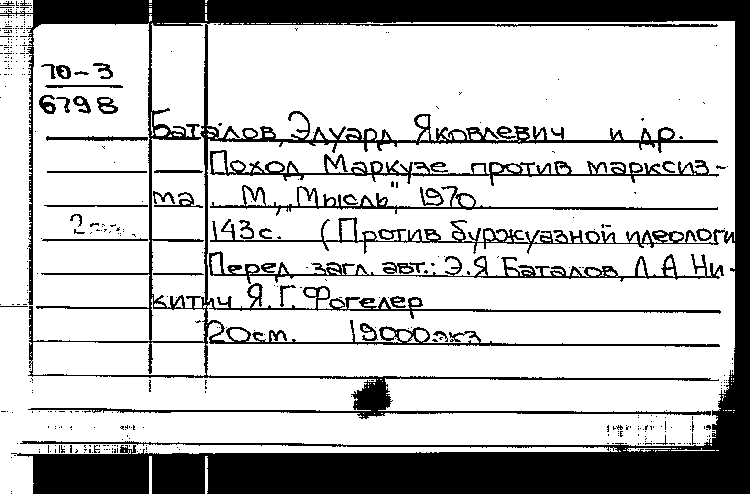 70-3
6798
Баталов, Эдуард Яковлевич и др.
Поход Маркузе против марксиз-
ма. М., "Мысль", 1970.
143 с. (Против буржуазной идеологи
Перед загл. авт.: Э.Я Баталов, Л.А Ни-
китич, Я.Г. Фогелер
20 см. 19000 экз.